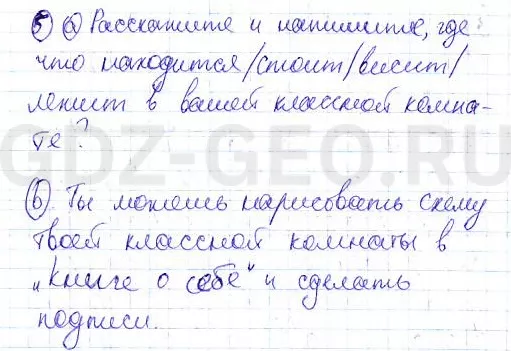 5 a Расскажите и напишите, где
что находится/стоит/висит/
лежит в вашей классной комна-
те?
GDZ-GEO.RU
b. Ты можешь нарисовать схему
твоей классной комнаты в
„Книге о себе" и сделать
подписи.